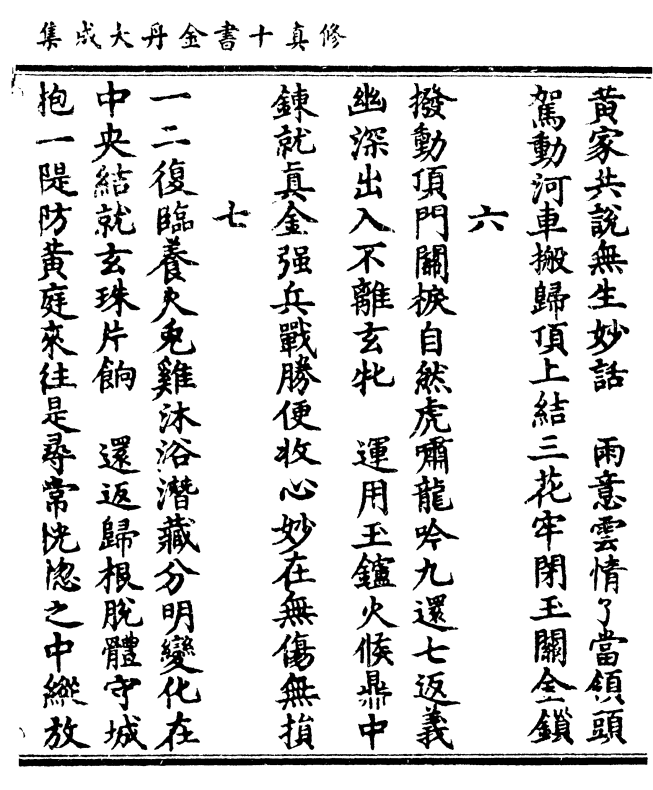 修真十書金丹大成集
黃家共說無生妙話　雨意雲情了當領頭
駕動河車搬歸頂上結三花牢閉玉關金鎖
六
撥動頂門關捩自然虎嘯龍吟九還七返義
幽深出入不離玄牝　運用玉鑪火候鼎中
鍊就真金强兵戰勝便收心妙在無傷無損
七
一二復臨養火兎雞沐浴潛藏分明變化在
中央結就玄珠片餉　還返歸根脫體守城
抱一隄防黃庭來往是尋常恍惚之中縱放